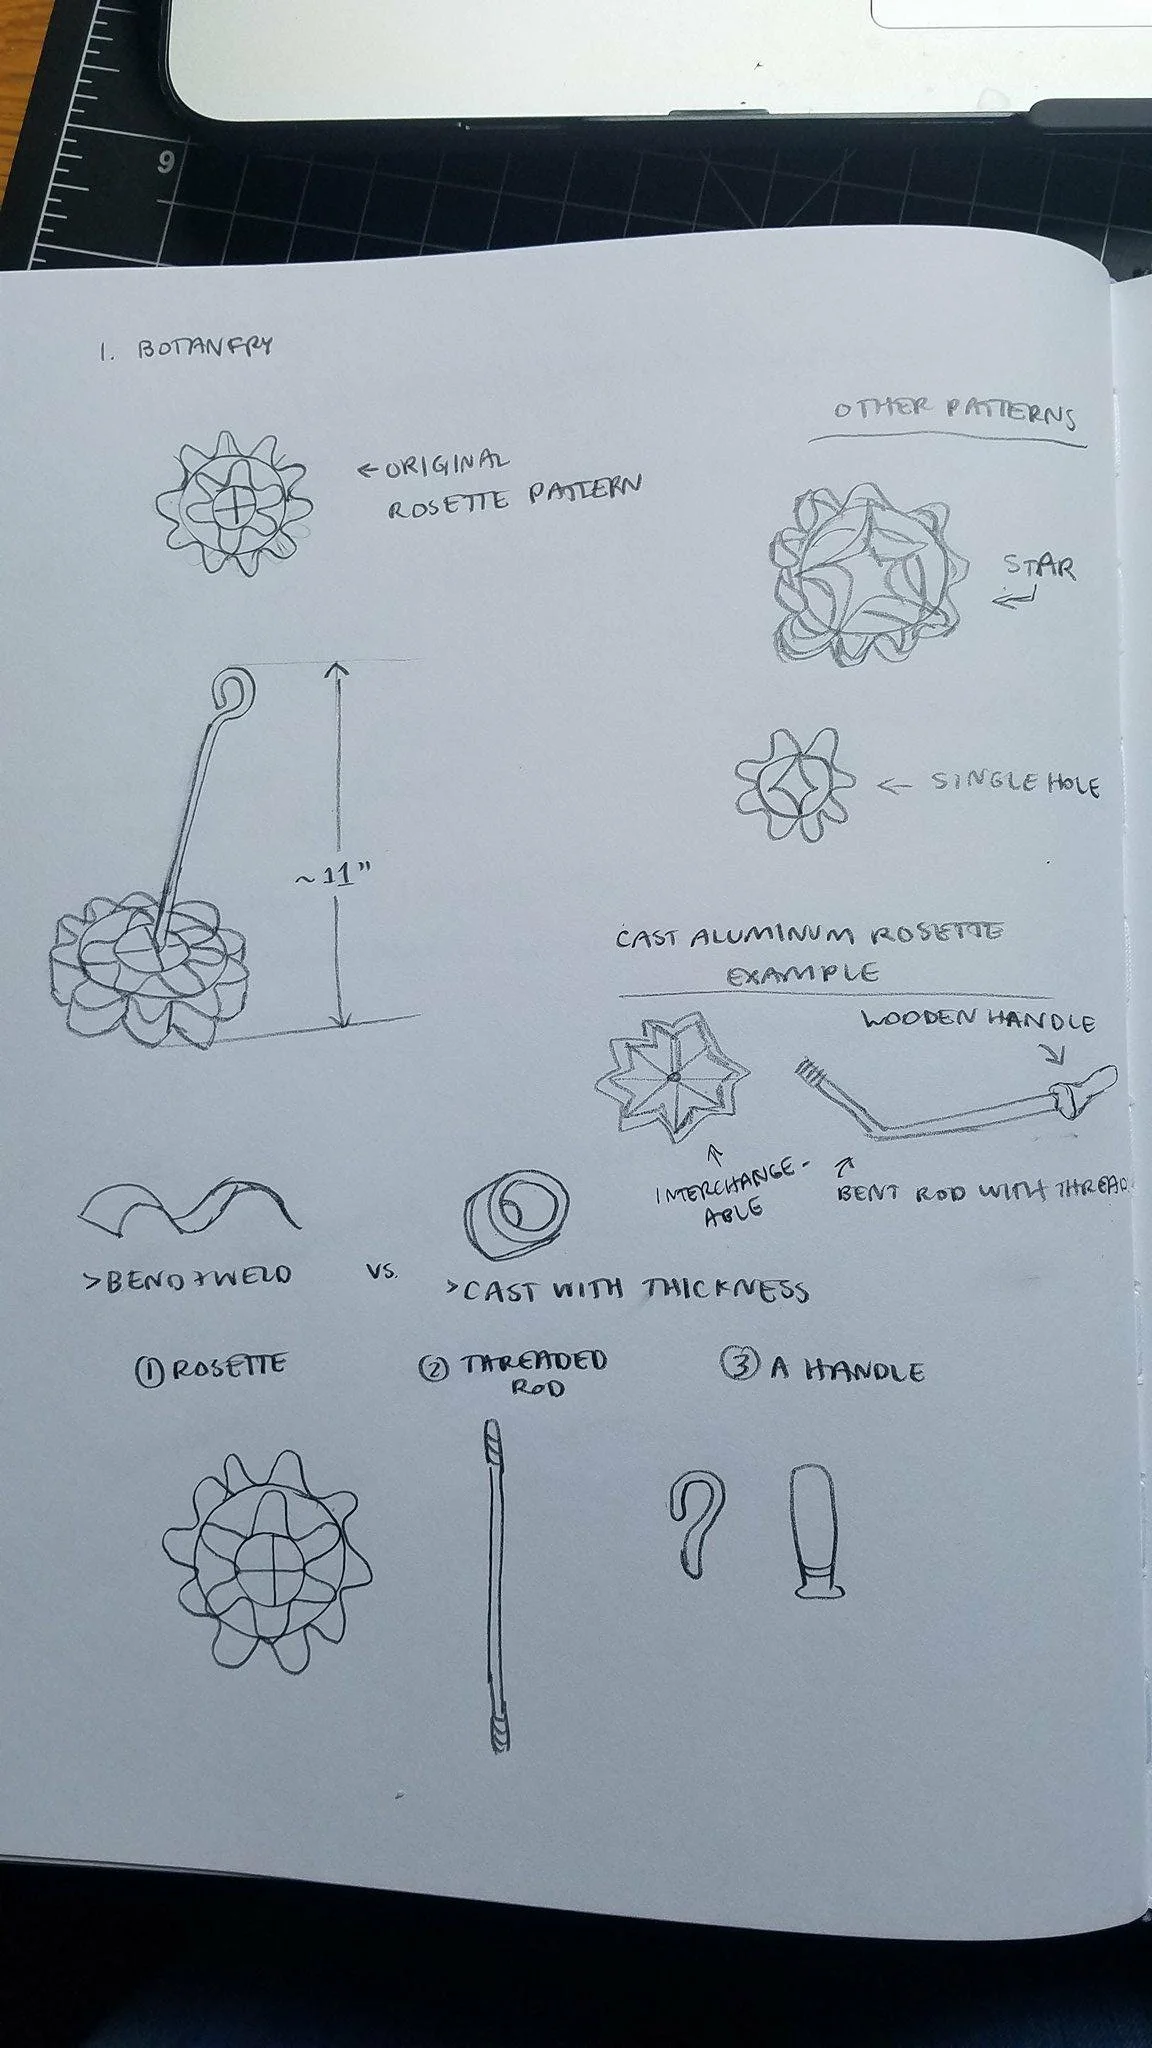 9
1. BOTANFRY
OTHER PATTERNS
← ORIGINAL
ROSETTE PATTERN
STAR
← SINGLE HOLE
~11"
CAST ALUMINUM ROSETTE
EXAMPLE
WOODEN HANDLE
INTERCHANGE-
ABLE
BENT ROD WITH THREAD
>BEND + WELD
VS.
>CAST WITH THICKNESS
① ROSETTE
② THREADED
ROD
③ A HANDLE